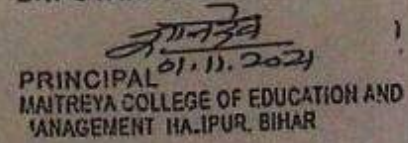 01.11.2021
PRINCIPAL
MAITREYA COLLEGE OF EDUCATION AND
MANAGEMENT HAJIPUR, BIHAR